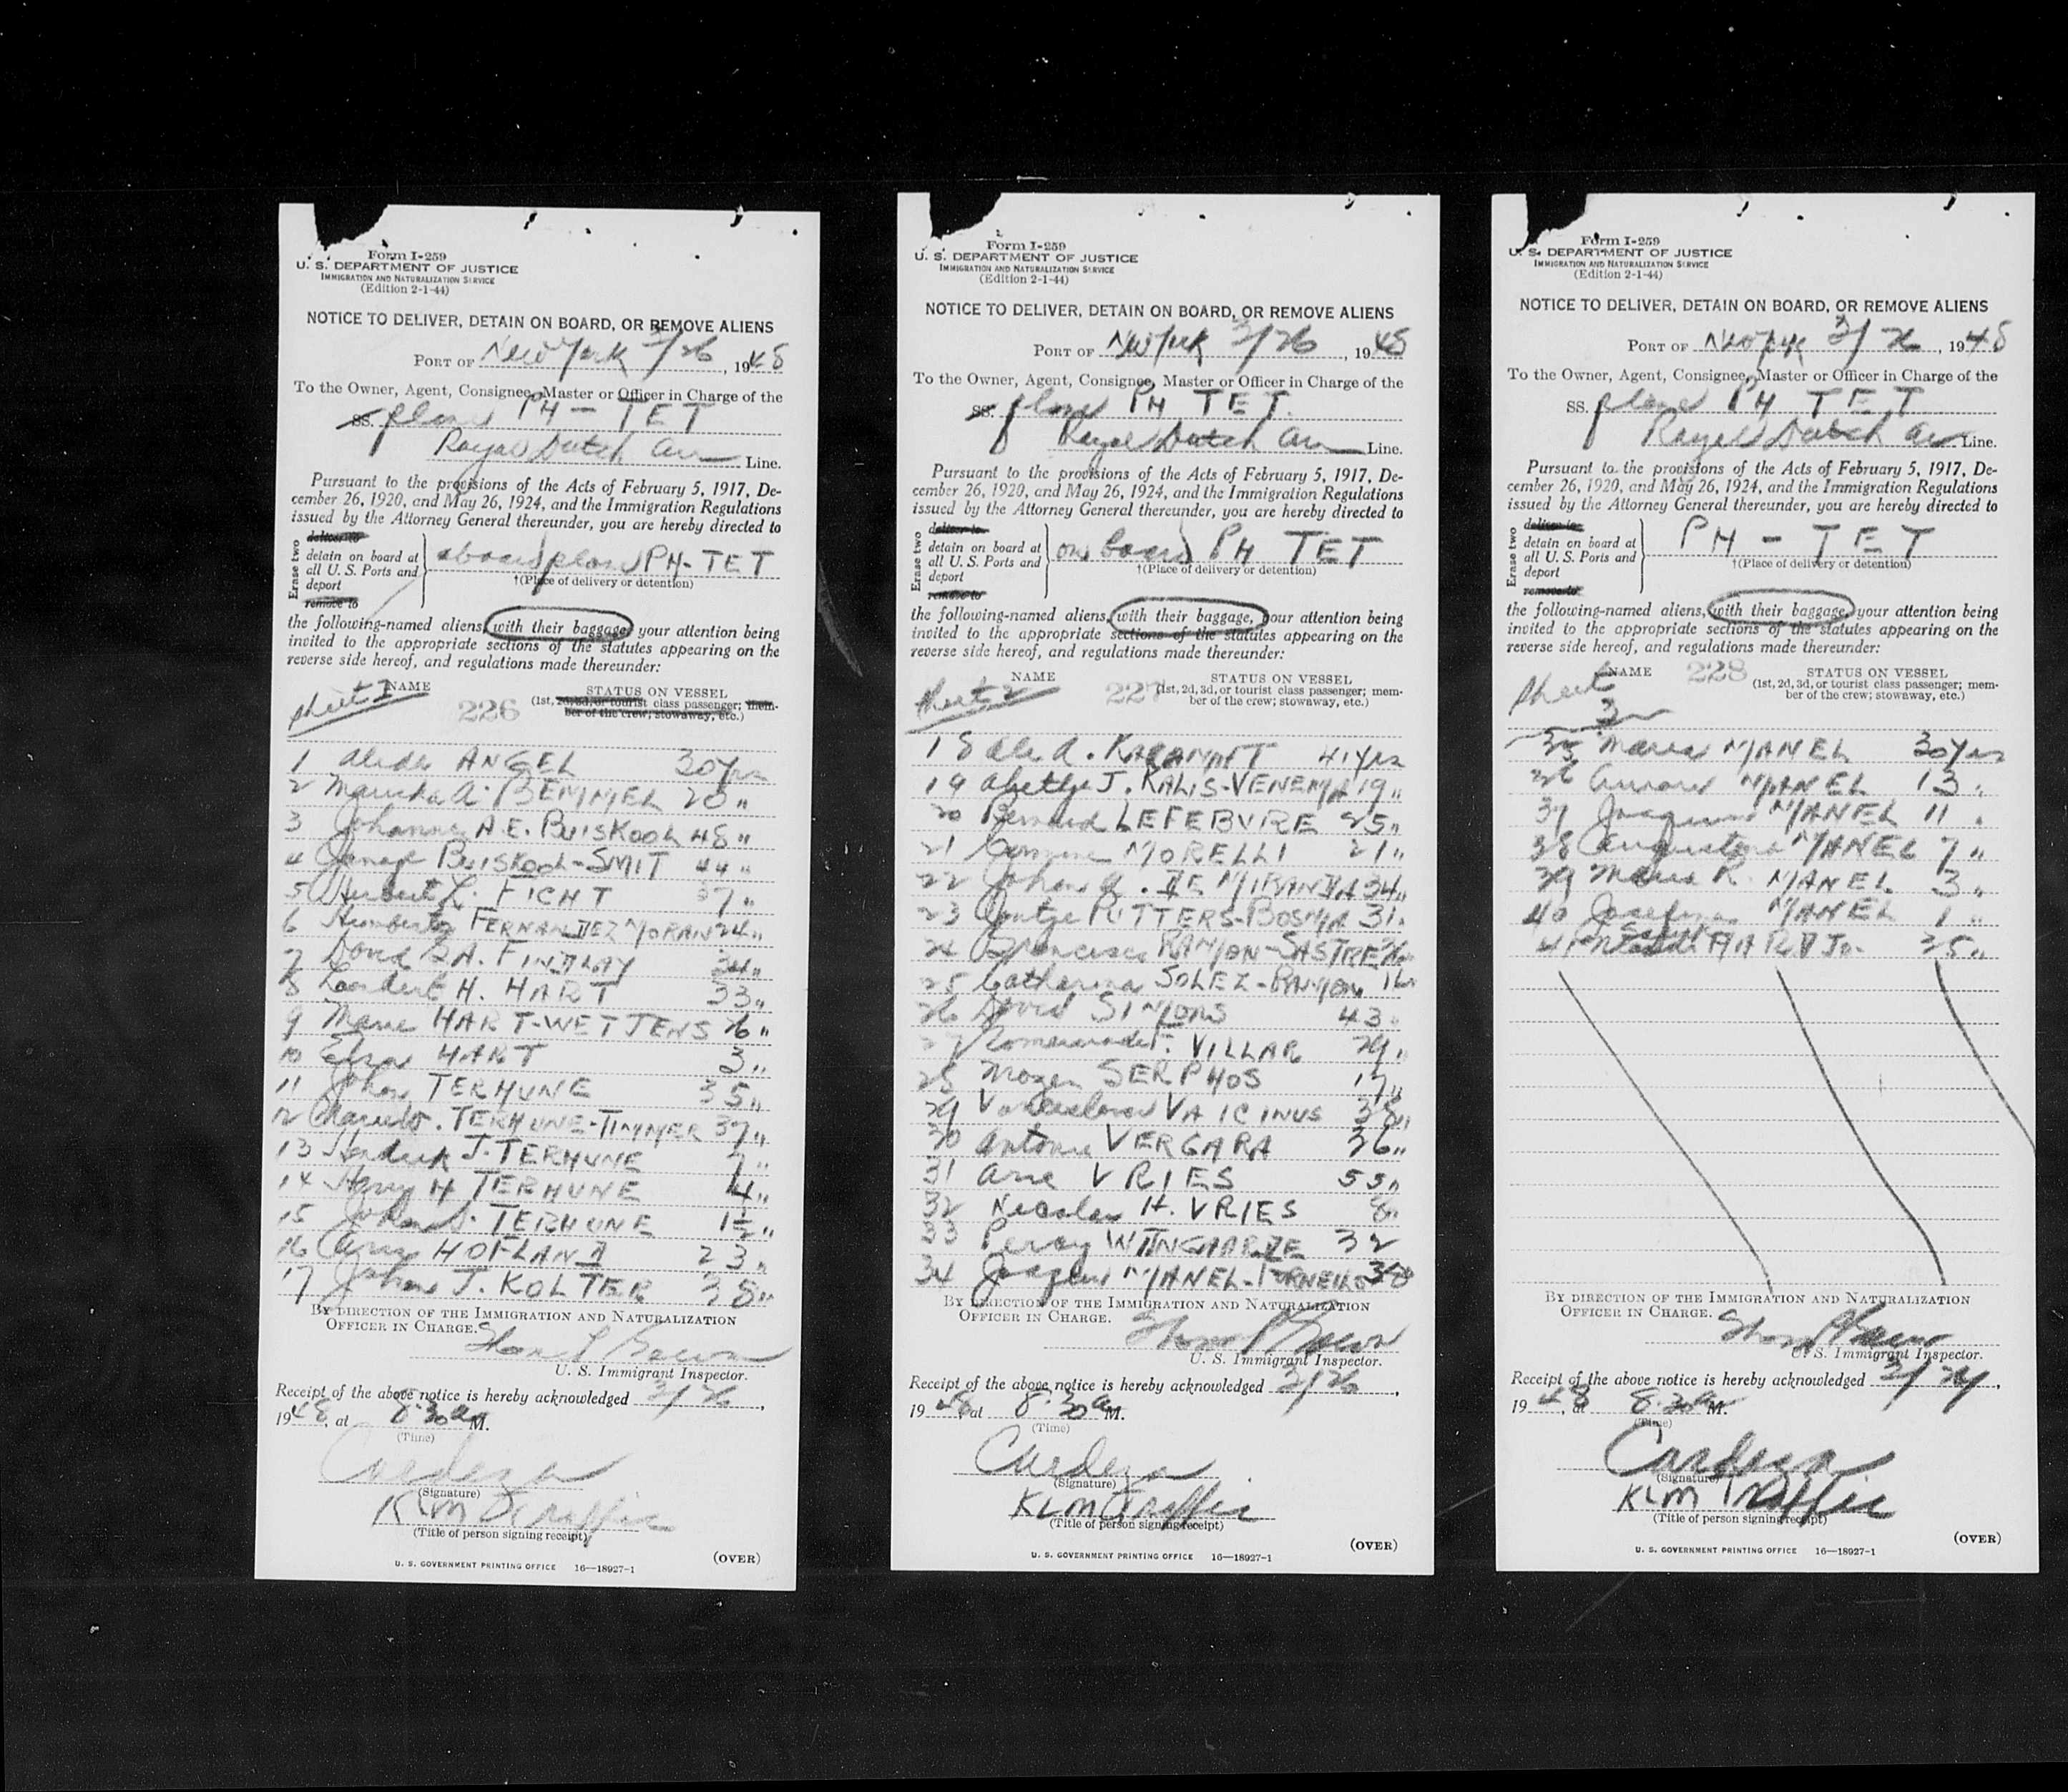 Form I-259
U. S. DEPARTMENT OF JUSTICE
IMMIGRATION AND NATURALIZATION SERVICE
(Edition 2-1-44)
NOTICE TO DELIVER, DETAIN ON BOARD, OR REMOVE ALIENS
PORT OF New York 3/26, 1948
To the Owner, Agent, Consignee, Master or Officer in Charge of the
SS. plane PH-TET
Royal Dutch Air Line.
Pursuant to the provisions of the Acts of February 5, 1917, De-
cember 26, 1920, and May 26, 1924, and the Immigration Regulations
issued by the Attorney General thereunder, you are hereby directed to
Erase two
deliver to
detain on board at
all U. S. Ports and
deport
remove to
aboard plane PH-TET
†(Place of delivery or detention)
the following-named aliens, with their baggage, your attention being
invited to the appropriate sections of the statutes appearing on the
reverse side hereof, and regulations made thereunder:
NAME
STATUS ON VESSEL
(1st, 2d, 3d, or tourist class passenger; mem-
ber of the crew; stowaway, etc.)
sheet 1
226
1 Alida ANGEL 30 yrs
2 A. BEMMEL 20 "
3 A.E. BUISKOOL 48 "
4 BUISKOOL-SMIT 44 "
5 Herbert L. FICHT 37 "
6 Humberto FERNANDEZ MORAN 24 "
7 David FINDLAY 34 "
8 Lambert H. HART 33 "
9 Marie HART-WETJENS "
10 Elsa HART 3 "
11 Johan TERHUNE 35 "
12 TERHUNE-TIMMER 37 "
13 Hendrik J. TERHUNE 7 "
14 Harry H TERHUNE 4 "
15 TERHUNE 1½ "
16 HOFLAND 23 "
17 Johan J. KOLTER 38 "
BY DIRECTION OF THE IMMIGRATION AND NATURALIZATION
OFFICER IN CHARGE.
U. S. Immigrant Inspector.
Receipt of the above notice is hereby acknowledged 3/26,
1948, at 8:30 a M.
(Time)
Cardeza
(Signature)
KLM Traffic
(Title of person signing receipt)
(OVER)
U. S. GOVERNMENT PRINTING OFFICE 16—18927-1
Form I-259
U. S. DEPARTMENT OF JUSTICE
IMMIGRATION AND NATURALIZATION SERVICE
(Edition 2-1-44)
NOTICE TO DELIVER, DETAIN ON BOARD, OR REMOVE ALIENS
PORT OF New York 3/26, 1948
To the Owner, Agent, Consignee, Master or Officer in Charge of the
SS. plane PH TET.
Royal Dutch Air Line.
Pursuant to the provisions of the Acts of February 5, 1917, De-
cember 26, 1920, and May 26, 1924, and the Immigration Regulations
issued by the Attorney General thereunder, you are hereby directed to
Erase two
deliver to
detain on board at
all U. S. Ports and
deport
remove to
on board PH TET
†(Place of delivery or detention)
the following-named aliens, with their baggage, your attention being
invited to the appropriate sections of the statutes appearing on the
reverse side hereof, and regulations made thereunder:
NAME
STATUS ON VESSEL
(1st, 2d, 3d, or tourist class passenger; mem-
ber of the crew; stowaway, etc.)
sheet 2
227
18 A. 41 yrs
19 J. KALIS-VENEMA 19 "
20 Bernard LEFEBVIRE 25 "
21 MORELLI 21 "
22 Johan DE MIRANDA 34 "
23 PUTTERS-BOSMA 31 "
24 Francisca RAMON-SASTRE
25 Catharina SOLEZ-RAMON 16
26 David SIMONS 43 "
27 VILLAR 29 "
28 Mozes SERPHOS 17 "
29 VAICINUS 38 "
30 Antonio VERGARA 36 "
31 Arie VRIES 55 "
32 Nicolaas H. VRIES 8 "
33 Percy WIJNGAARDE 32
34 Joaquin MANEL- 38
BY DIRECTION OF THE IMMIGRATION AND NATURALIZATION
OFFICER IN CHARGE.
U. S. Immigrant Inspector.
Receipt of the above notice is hereby acknowledged 3/26,
1948, at 8:30 a M.
(Time)
Cardeza
(Signature)
KLM Traffic
(Title of person signing receipt)
(OVER)
U. S. GOVERNMENT PRINTING OFFICE 16—18927-1
Form I-259
U. S. DEPARTMENT OF JUSTICE
IMMIGRATION AND NATURALIZATION SERVICE
(Edition 2-1-44)
NOTICE TO DELIVER, DETAIN ON BOARD, OR REMOVE ALIENS
PORT OF New York 3/26, 1948
To the Owner, Agent, Consignee, Master or Officer in Charge of the
SS. plane PH TET
Royal Dutch Air Line.
Pursuant to the provisions of the Acts of February 5, 1917, De-
cember 26, 1920, and May 26, 1924, and the Immigration Regulations
issued by the Attorney General thereunder, you are hereby directed to
Erase two
deliver to
detain on board at
all U. S. Ports and
deport
remove to
PH-TET
†(Place of delivery or detention)
the following-named aliens, with their baggage, your attention being
invited to the appropriate sections of the statutes appearing on the
reverse side hereof, and regulations made thereunder:
NAME
STATUS ON VESSEL
(1st, 2d, 3d, or tourist class passenger; mem-
ber of the crew; stowaway, etc.)
sheet 3
228
35 Maria MANEL 30 yrs
36 MANEL 13 "
37 Joaquin MANEL 11 "
38 MANEL 7 "
39 Maria R. MANEL 3 "
40 Josefina MANEL 1 "
41 35 "
BY DIRECTION OF THE IMMIGRATION AND NATURALIZATION
OFFICER IN CHARGE.
U. S. Immigrant Inspector.
Receipt of the above notice is hereby acknowledged 3/26,
1948, at 8:30 a M.
(Time)
Cardeza
(Signature)
KLM Traffic
(Title of person signing receipt)
(OVER)
U. S. GOVERNMENT PRINTING OFFICE 16—18927-1